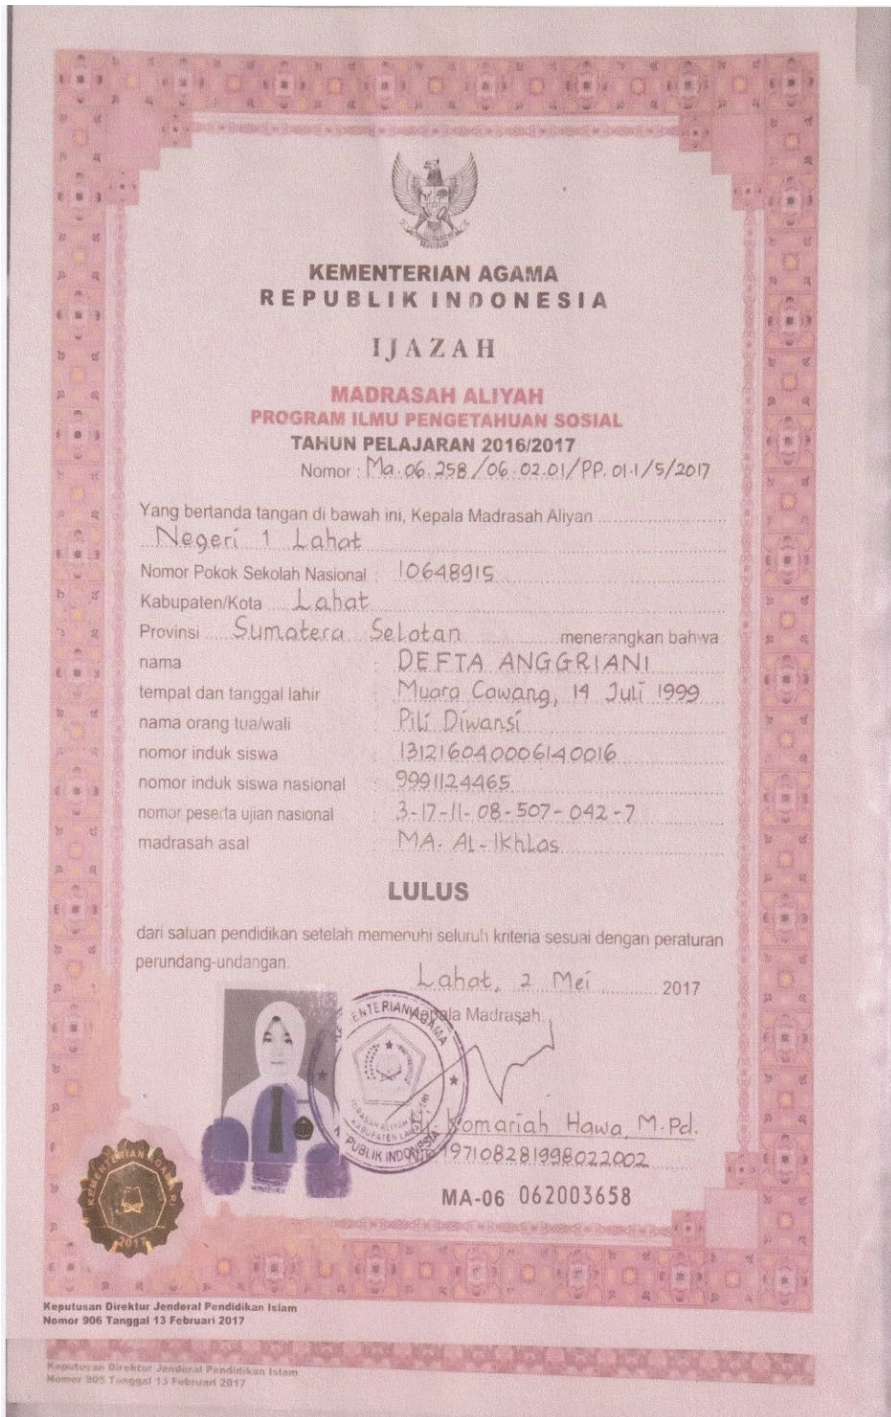 KEMENTERIAN AGAMA
REPUBLIK INDONESIA
IJAZAH
MADRASAH ALIYAH
PROGRAM ILMU PENGETAHUAN SOSIAL
TAHUN PELAJARAN 2016/2017
Nomor : Ma.06.258/06.02.01/PP.01.1/5/2017
Yang bertanda tangan di bawah ini, Kepala Madrasah Aliyah
Negeri 1 Lahat
Nomor Pokok Sekolah Nasional : 10648915
Kabupaten/Kota Lahat
Provinsi Sumatera Selatan menerangkan bahwa :
nama : DEFTA ANGGRIANI
tempat dan tanggal lahir : Muara Cawang, 14 Juli 1999
nama orang tua/wali : Pili Diwansi
nomor induk siswa : 131216040006140016
nomor induk siswa nasional : 9991124465
nomor peserta ujian nasional : 3-17-11-08-507-042-7
madrasah asal : MA. AL-Ikhlas
LULUS
dari satuan pendidikan setelah memenuhi seluruh kriteria sesuai dengan peraturan
perundang-undangan.
Lahat, 2 Mei 2017
Kepala Madrasah,
KEMENTERIAN AGAMA
REPUBLIK INDONESIA
KABUPATEN LAHAT
Komariah Hawa, M.Pd.
197108281998022002
MA-06 062003658
KEMENTERIAN AGAMA RI
2017
Keputusan Direktur Jenderal Pendidikan Islam
Nomor 906 Tanggal 13 Februari 2017
Keputusan Direktur Jenderal Pendidikan Islam
Nomor 905 Tanggal 13 Februari 2017